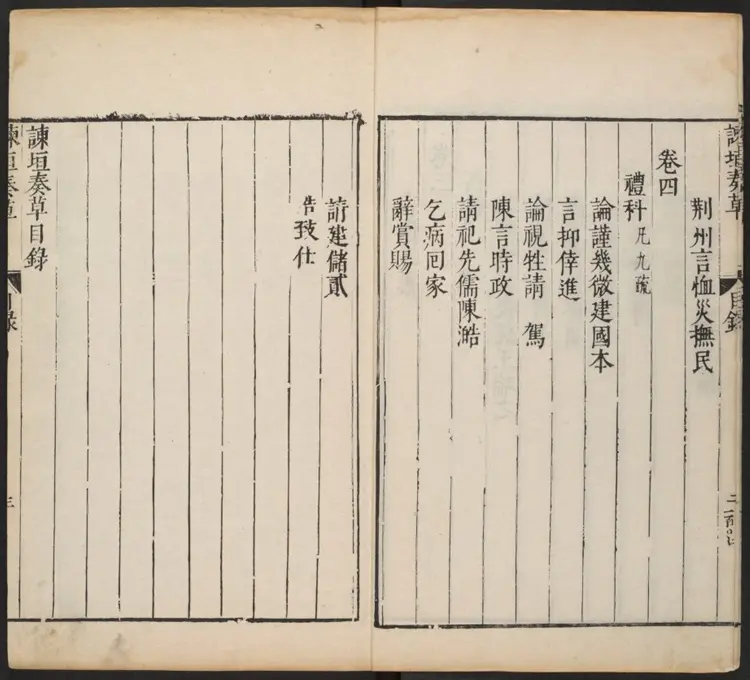 諫垣奏草
目錄
二
荆州言恤災撫民
卷四
禮科凡九疏
論謹幾微建國本
言抑倖進
論視牲請 駕
陳言時政
請祀先儒陳澔
乞病回家
辭賞賜
請建儲貳
告致仕
諫垣奏草目錄
諫垣奏草
目錄
三